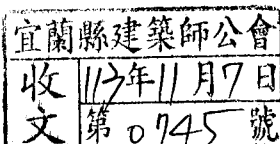 宜蘭縣建築師公會
收文 113年11月7日
第0745號